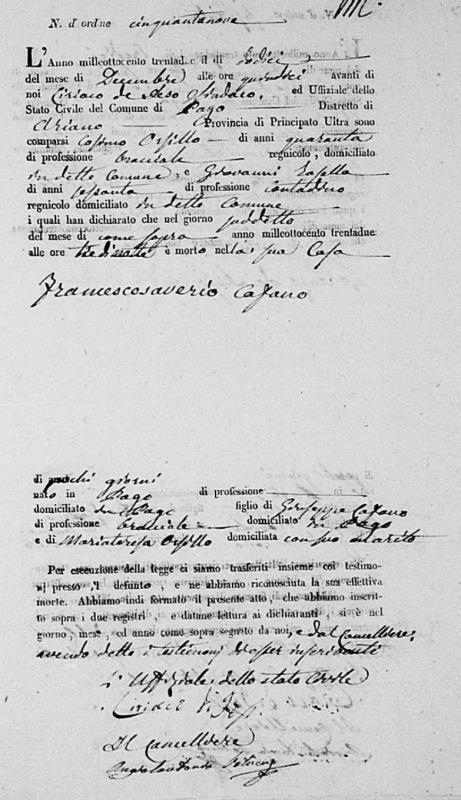 N. d'ordne cinquantanove
L'Anno milleottocento trentadue il dì dodici
del mese di Decembre alle ore quindici avanti di
noi Ciriaco de Sindaco, ed Uffiziale dello
Stato Civile del Comune di Pago Distretto di
Ariano Provincia di Principato Ultra sono
comparsi Cosmo Orsillo di anni quaranta
di professione bracciale regnicolo, domiciliato
in detto Comune, e Giovanni
di anni sessanta di professione contadino
regnicolo domiciliato in detto Comune
i quali han dichiarato che nel giorno suddetto
del mese di come sopra anno milleottocento trentadue
alle ore è morto nella sua Casa
Francescosaverio Cafano
di anni pochi giorni
nato in Pago di professione
domiciliato in Pago figlio di Giuseppe Cafano
di professione bracciale domiciliato in Pago
e di Mariateresa Orsillo domiciliata con suo marito
Per esecuzione della legge ci siamo trasferiti insieme coi testimo-
nj presso il defunto, e ne abbiamo riconosciuta la sua effettiva
morte. Abbiamo indi formato il presente atto, che abbiamo inscrit-
to sopra i due registri, e datane lettura ai dichiaranti, si è nel
giorno, mese, ed anno come sopra segnato da noi, e dal Cancelliere,
avendo detto i testimonj
L'Uffiziale dello stato Civile
Ciriaco
Il Cancelliere